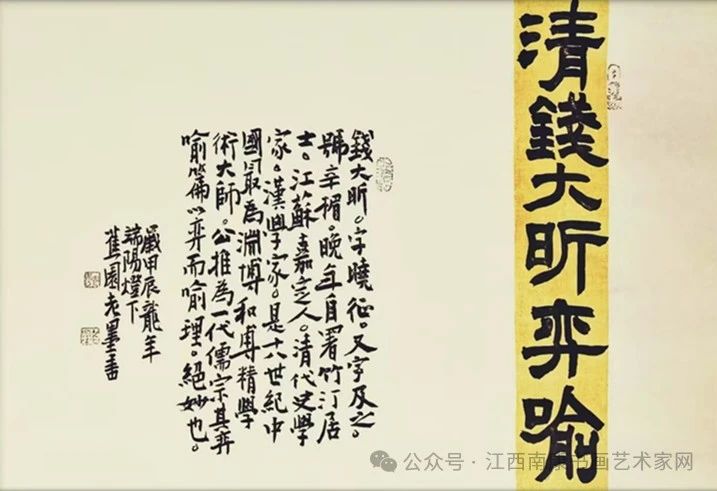 清錢大昕弈喻
錢大昕。字曉征。又字及之。
號辛楣。晚年自署竹汀居
士。江蘇嘉定人。清代史學
家。漢學家。是十八世紀中
國最為淵博和專精學
術大師。公推為一代儒宗其弈
喻篇以弈而喻理。絕妙也。
歲甲辰龍年
端陽燈下
蕉園老墨書
公众号·江西南康书画艺术家网